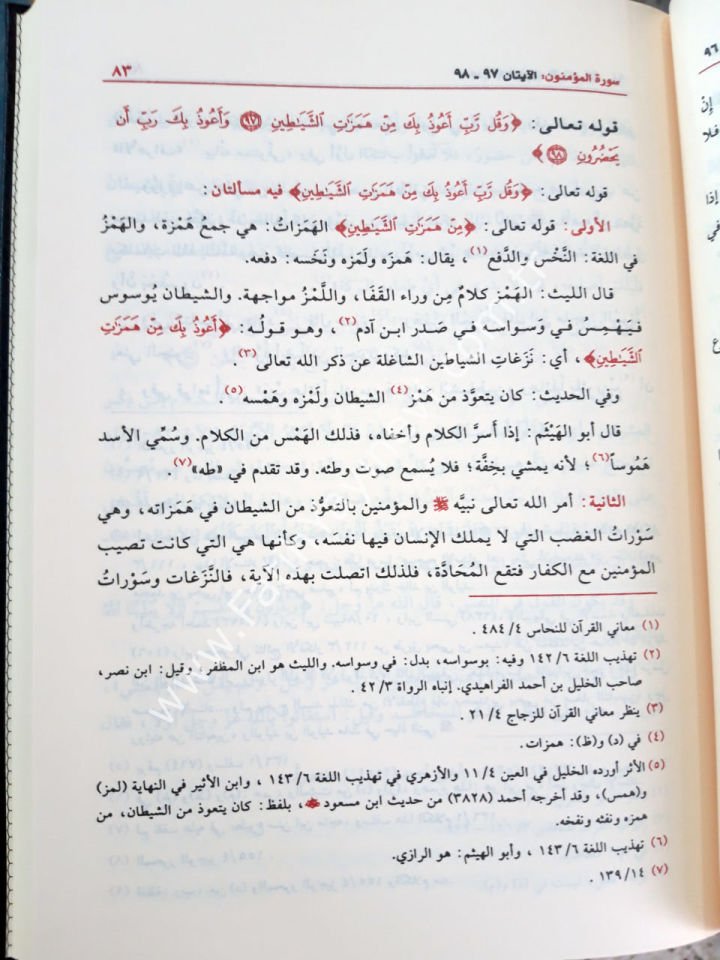 سورة المؤمنون: الآيتان ٩٧ - ٩٨
٨٣
قوله تعالى: ﴿وَقُل رَّبِّ أَعُوذُ بِكَ مِنْ هَمَزَٰتِ ٱلشَّيَٰطِينِ ۝٩٧ وَأَعُوذُ بِكَ رَبِّ أَن
يَحْضُرُونِ ۝٩٨﴾
قوله تعالى: ﴿وَقُل رَّبِّ أَعُوذُ بِكَ مِنْ هَمَزَٰتِ ٱلشَّيَٰطِينِ﴾ فيه مسألتان:
الأولى: قوله تعالى: ﴿مِنْ هَمَزَٰتِ ٱلشَّيَٰطِينِ﴾ الهَمَزاتُ: هي جمع هَمْزة، والهَمْزُ
في اللغة: النَّخْس والدَّفع(١)، يقال: هَمَزه ولَمَزه ونَخَسه: دفعه.
قال الليث: الهَمْز كلامٌ مِن وراء القَفَا، واللَّمْزُ مواجهة. والشيطان يُوسوس
فيَهْمِس في وَسواسه في صَدر ابن آدم(٢). وهو قوله: ﴿أَعُوذُ بِكَ مِنْ هَمَزَٰتِ
ٱلشَّيَٰطِينِ﴾، أي: نَزَغاتِ الشياطين الشاغلة عن ذكر الله تعالى(٣).
وفي الحديث: كان يتعوّذ من هَمْز(٤) الشيطان ولَمْزه وهَمْسه(٥).
قال أبو الهَيْثم: إذا أَسرَّ الكلام وأخفاه، فذلك الهَمْس من الكلام. وسُمِّي الأسد
هَمُوساً(٦)؛ لأنه يمشي بخِفَّة؛ فلا يُسمع صوت وطئه. وقد تقدم في «طه»(٧).
الثانية: أمر الله تعالى نبيَّه ﷺ والمؤمنين بالتعوُّذ من الشيطان في هَمَزاته، وهي
سَوْراتُ الغضب التي لا يملك الإنسان فيها نفسَه، وكأنها هي التي كانت تصيب
المؤمنين مع الكفار فتقع المُحَادَّة، فلذلك اتصلت بهذه الآية، فالنَّزَغات وسَوْراتُ
(١) معاني القرآن للنحاس ٤٨٤/٤ .
(٢) تهذيب اللغة ١٤٢/٦ وفيه: بوسواسه، بدل: في وسواسه. والليث هو ابن المظفر، وقيل: ابن نصر،
صاحب الخليل بن أحمد الفراهيدي. إنباه الرواة ٤٢/٣.
(٣) ينظر معاني القرآن للزجاج ٢١/٤ .
(٤) في (د) و(ظ): همزات.
(٥) الأثر أورده الخليل في العين ١١/٤ والأزهري في تهذيب اللغة ١٤٣/٦ ، وابن الأثير في النهاية (لمز)
و(همس)، وقد أخرجه أحمد (٣٨٢٨) من حديث ابن مسعود ﷺ، بلفظ: كان يتعوذ من الشيطان، من
همزه ونفثه ونفخه.
(٦) تهذيب اللغة ١٤٣/٦ ، وأبو الهيثم: هو الرازي.
(٧) ١٣٩/١٤ .
٩٦
إنْ
فلا
إذا
في